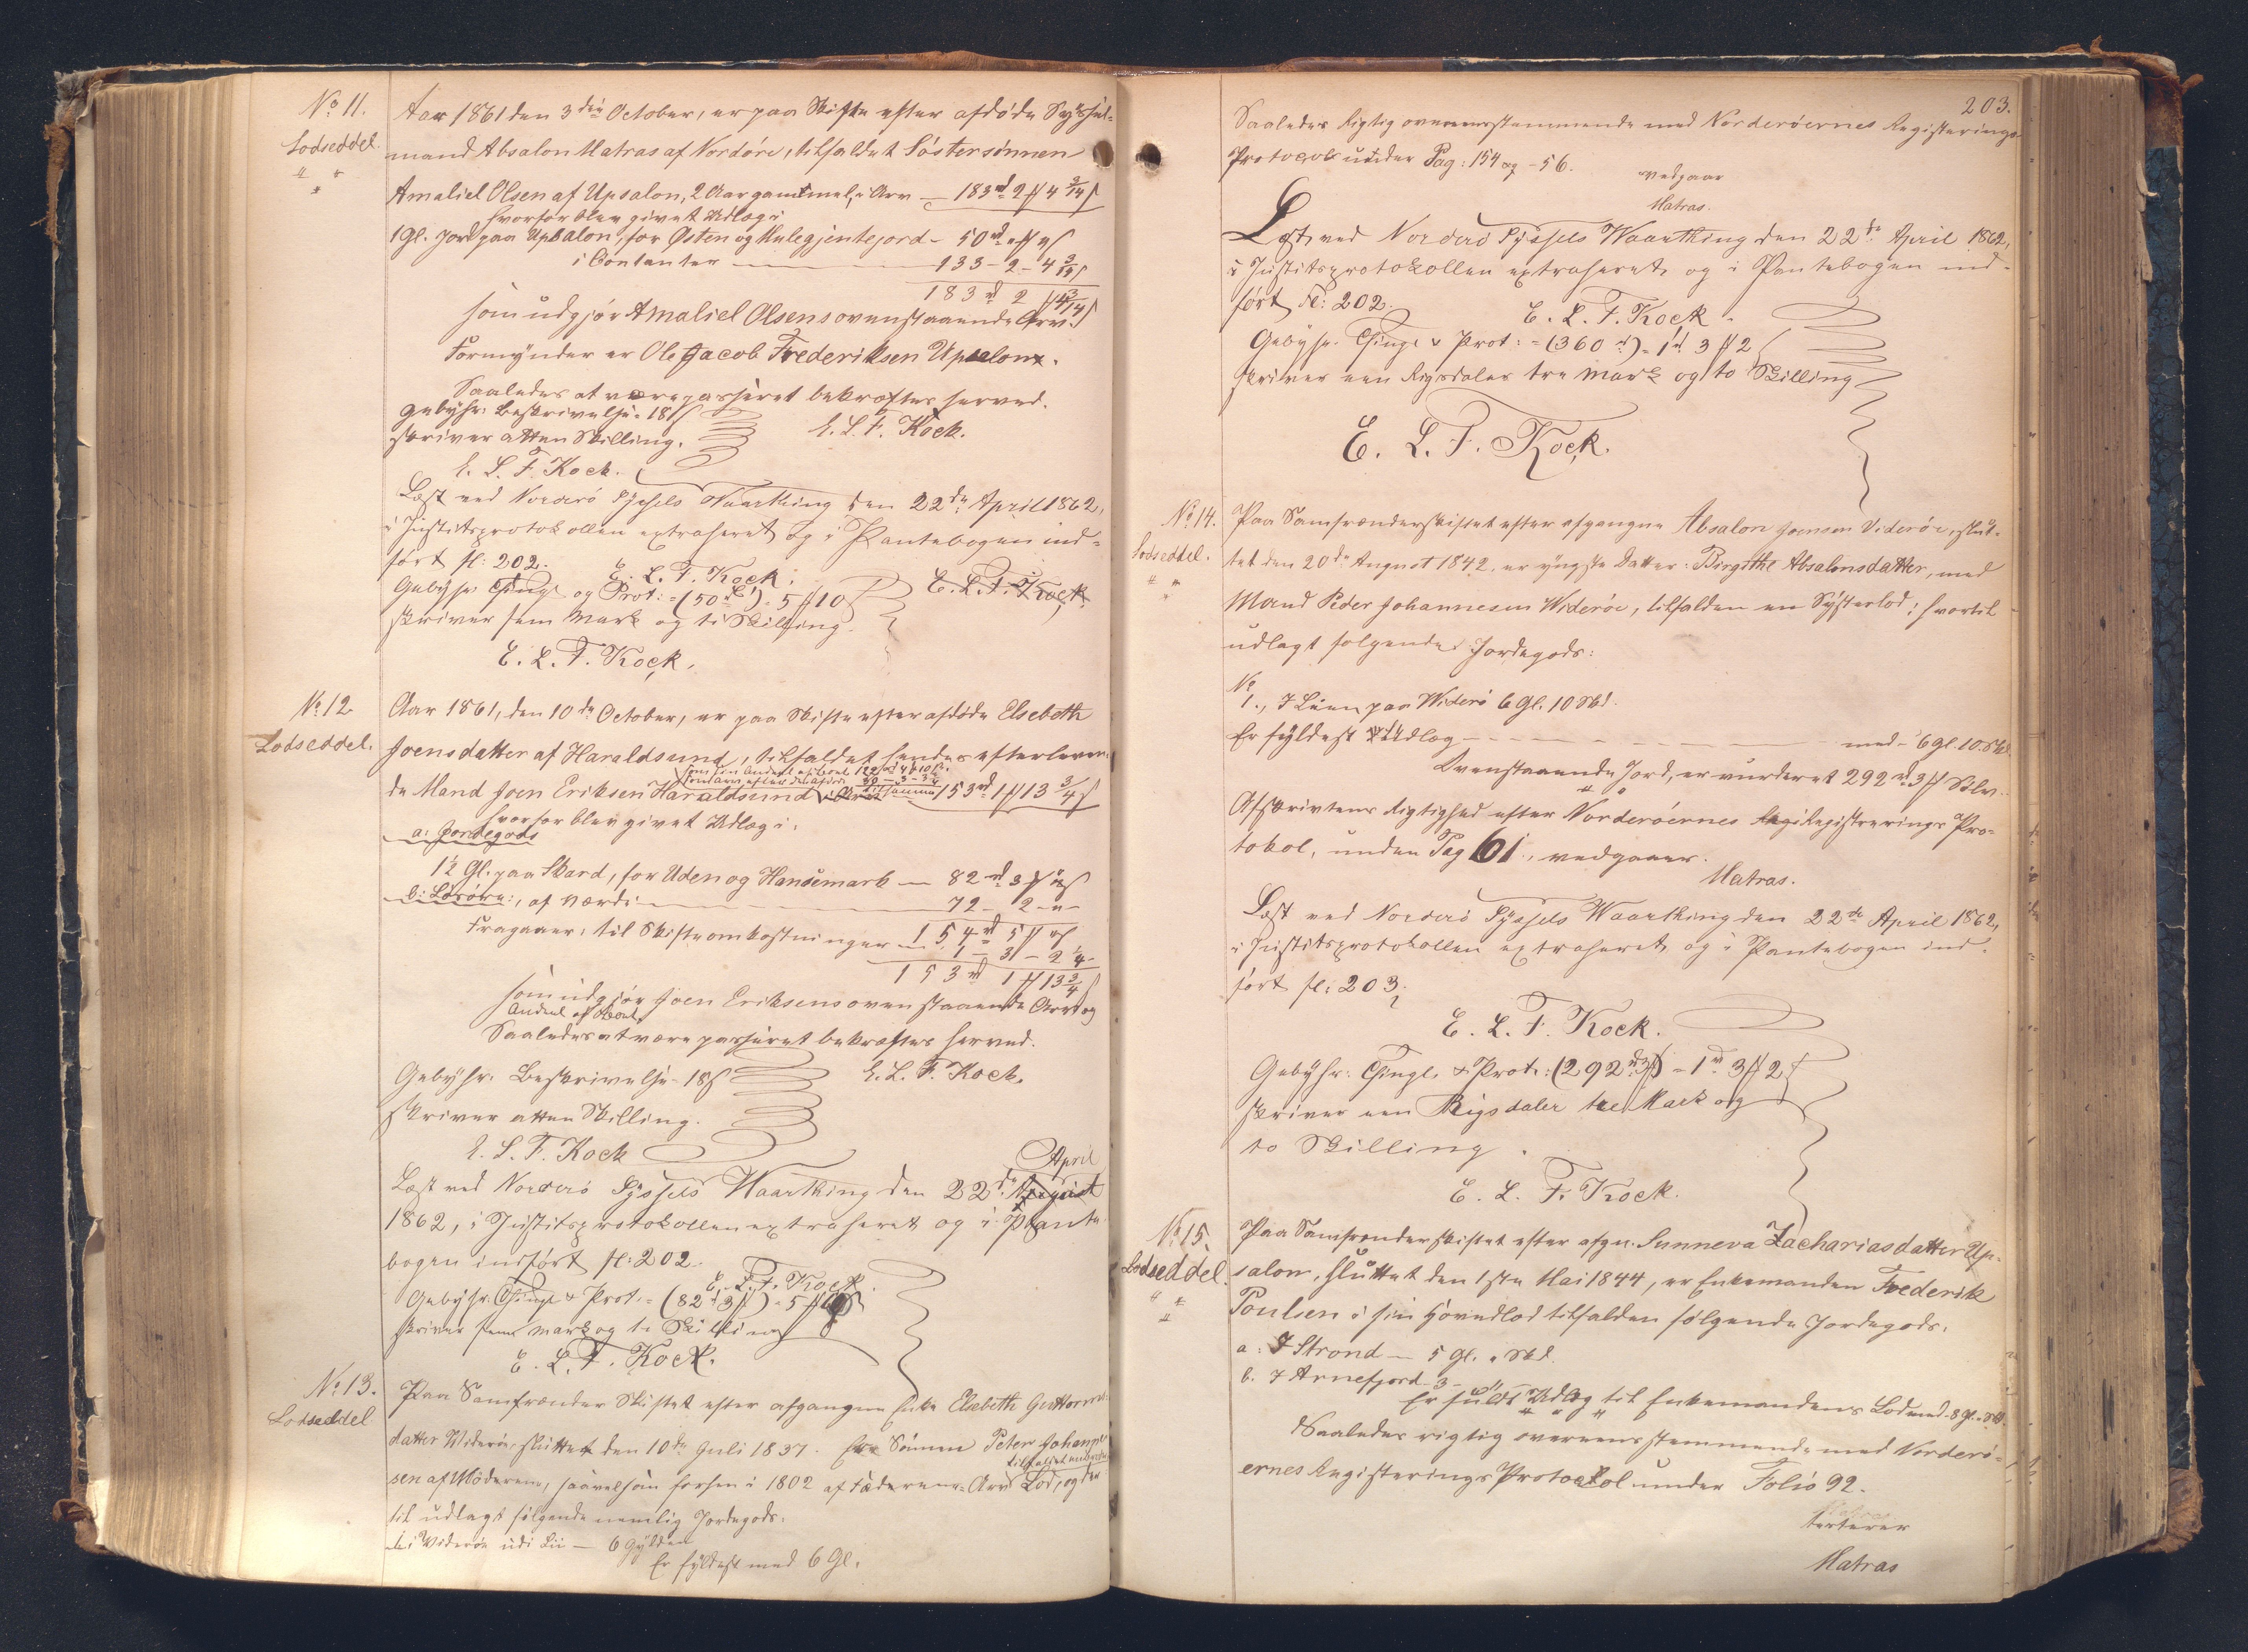 No 11.
Lodseddel.
Aar 1861 den 3die October, er paa Skifte efter afdøde Syssel-
mand Absalon Matras af Nordøre, tilfaldet Søstersønnen
Amaliel Olsen af Upsalon, 2 Aar gammel, i Arv — 183 rd 2 ß 4 3/14 s
hvorfor blev givet Udlæg i
1 Gl. Jord paa Upsalon, for Østen og Mulegjentejord - 50 rd " ß " s
i Contanter — 133 - 2 - 4 3/14 s
183 rd 2 ß 4 3/14 s
som udgjør Amaliel Olsens ovenstaaende Arv.
Formynder er Ole Jacob Frederiksen Upsalon.
Saaledes at være passeret bekræftes herved.
Gebyhr: Beskrivelse 18 s
skriver atten Skilling.
E. L. F. Kock.
E. L. F. Kock.
Læst ved Norderø Syssels Vaarthing den 22de April 1862,
i Justitsprotokollen extraheret og i Pantebogen ind-
ført fl: 202.
E. L. F. Kock.
Gebyhr Thingl og Prot: = (50 rd) = 5 ß 10 s
E. L. F. Kock
skriver fem Mark og ti Skilling.
E. L. F. Kock.
No 12
Lodseddel.
Aar 1861, den 10de October, er paa Skifte efter afdøde Elsebeth
Joensdatter af Haraldsund, tilfaldet hendes efterleven-
de Mand Joen Eriksen Haraldsund i Arv tilsamme 153 rd 1 ß 13 3/4 s
hvorfor blev givet Udlæg i:
a: Jordegods
1 1/2 Gl. paa Skard, for Uden og Hansemark — 82 rd 3 ß " s
b: Løsøre:, af Værdi — 72 - 2 - " -
154 rd 5 ß " s
Fragaaer: til Skifteomkostninger — 1 - 3 - 2 1/4 -
153 rd 1 ß 13 3/4 s
som udgjør Joen Eriksens ovenstaaende Arv og
Andeel af Boet.
Saaledes at være passeret bekræftes herved.
Gebyhr: Beskrivelse - 18 s
E. L. F. Kock.
skriver atten Skilling.
E. L. F. Kock
April
Læst ved Norderø Syssels Vaarthing den 22de August
1862, i Justitsprotokollen extraheret og i Pante-
bogen indført fl: 202.
E. L. F. Kock.
Gebyhr. Thingl & Prot. = (82 rd 3 ß) = 5 ß 10 s
skriver fem Mark og ti Skilling
E. L. F. Kock.
No 13.
Lodseddel
Paa Samfrænder Skiftet efter afgangne Enke Elsebeth Guttorms-
datter Viderøe, sluttet den 10de Juli 1837. Er Sønnen Peter Johanne-
sen af Møderene, saavelsom forhen i 1802 af Fæderene Arv Lod, og der-
til udlagt følgende nemlig Jordegods:
i Viderøe udi Lii — 6 Gylden
Er fyldest med 6 Gl.
203.
Saaledes Rigtig overeensstemmende med Norderøernes Registerings-
Protocol under Pag: 154 og -56.
vedgaar
Matras.
Læst ved Norderø Syssels Vaarthing den 22de April 1862,
i Justitsprotokollen extraheret og i Pantebogen ind-
ført fl: 202.
E. L. F. Kock.
Gebyhr. Thingl & Prot: = (360 rd) = 1 rd 3 ß 2 s
skriver een Rigsdaler tre Mark og to Skilling
E. L. F. Kock.
No 14.
Lodseddel.
Paa Samfrænderskiftet efter afgangne Absalon Joensen Viderøe, slut-
tet den 20de August 1842. er yngste Datter: Birgithe Absalonsdatter, med
Mand Peder Johannesen Widerøe, tilfalden en Systerlod; hvortil
udlagt følgende Jordegods:
No
1., I Liien paa Widerø 6 Gl. 10 Skd.
Er fyldest Udlæg — med - 6 Gl. 10. Skd.
Ovenstaaende Jord, er vurderet 292 rd 3 ß Sølv.
Afskrivtens Rigtighed efter Norderøernes Registrerings Pro-
tokol, under Pag 61., vedgaaer.
Matras.
Læst ved Norderø Syssels Vaarthing den 22de April 1862,
i Justitsprotokollen extraheret, og i Pantebogen ind-
ført fl: 203.
E. L. F. Kock.
Gebyhr: Thingl. & Prot.: (292 rd 3 ß) = 1 rd 3 ß 2 s
skriver een Rigsdaler tre Mark og
to Skilling.
E. L. F. Kock.
No 15.
Lodseddel.
Paa Samfrænderskiftet efter afgn. Sunneva Zachariasdatter Up-
salon, sluttet den 1ste Mai 1844, er Enkemanden Frederik
Poulsen i sin Hovedlod tilfalden følgende Jordegods.
a: I Strond — 5 Gl. " Skd.
b. I Arnefjord - 3 - "
Er fuldt Udlæg til Enkemandens Lod med - 8 Gl. " Skd.
Saaledes rigtig overeensstemmende med Norderø-
ernes Registerings Protocol under Folio 92.
Matras